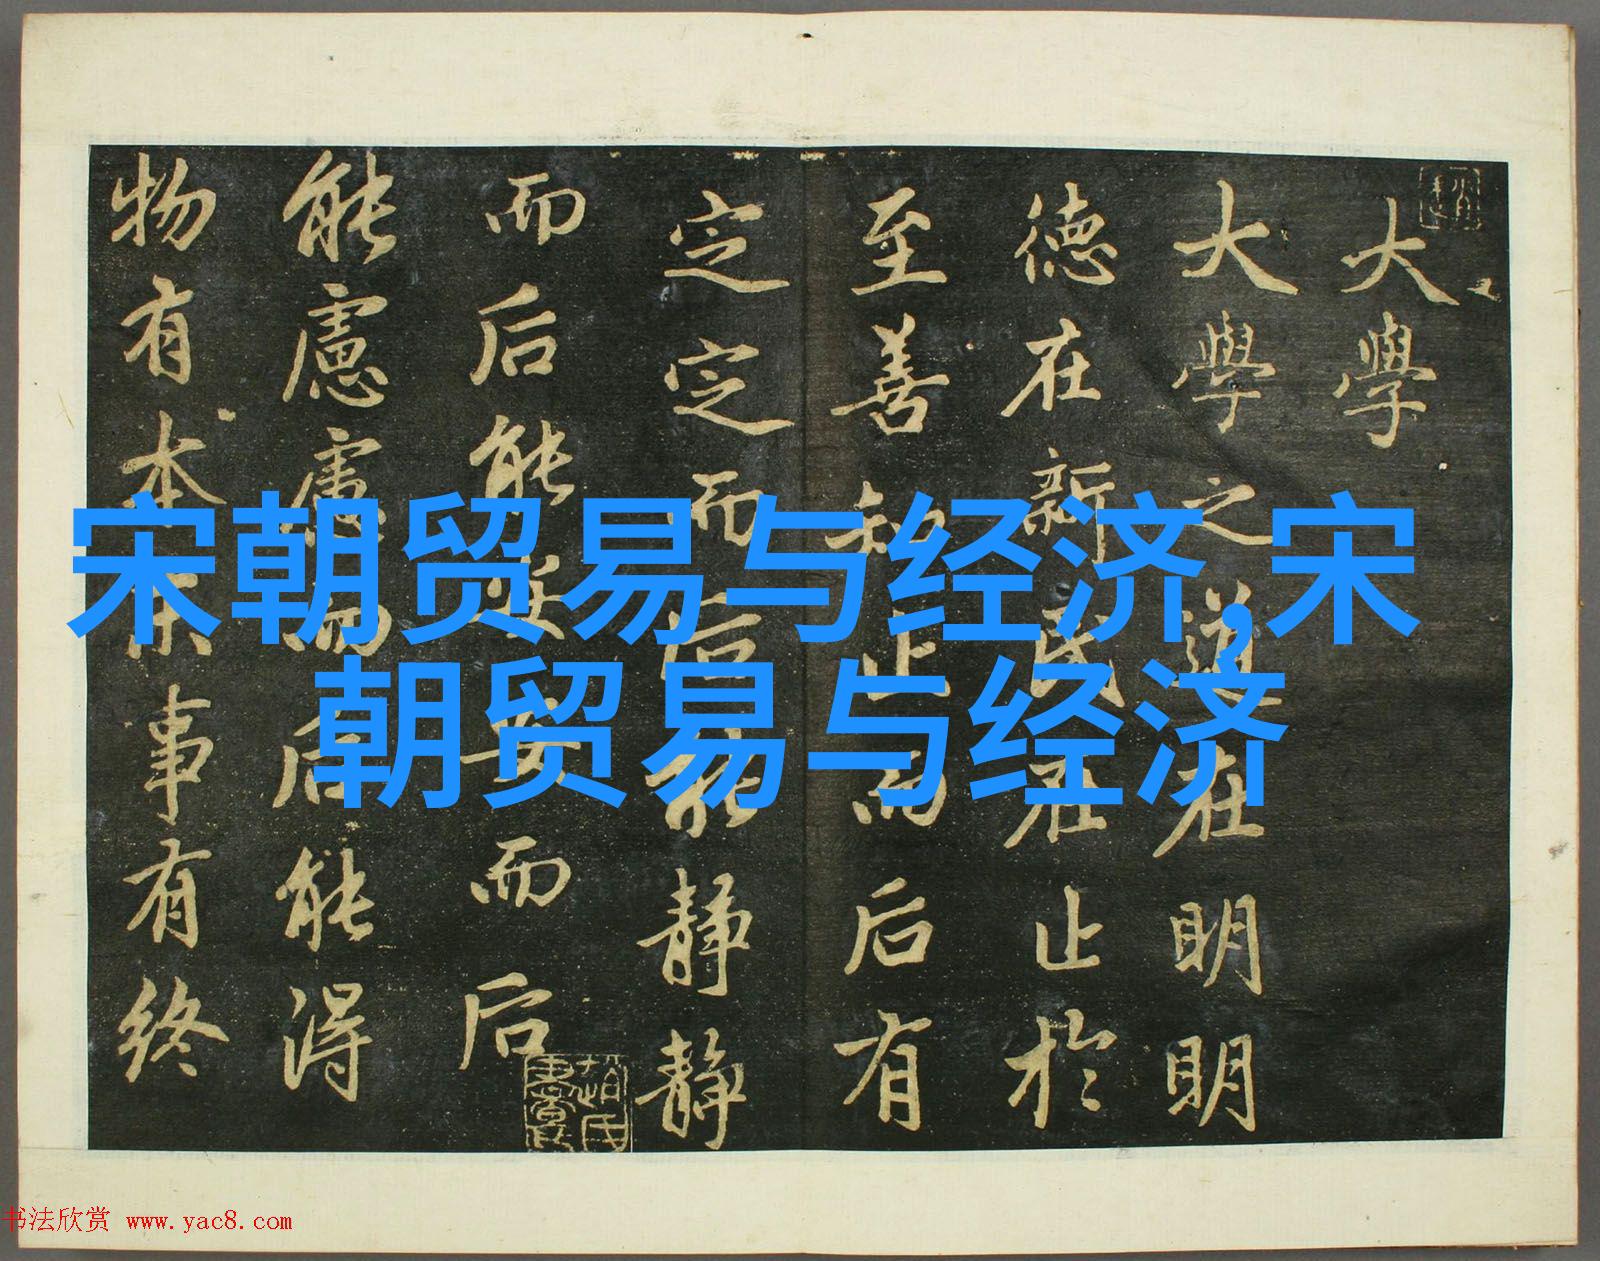 宋朝贸易与经济,宋
朝贸易与经济
大學
大學之道在明明
德在新民在止於
至善知止而后有
定定而后能静静
而后能安安而后
能慮慮而后能得
物有本末事有終
书法欣赏 www.yac8.com